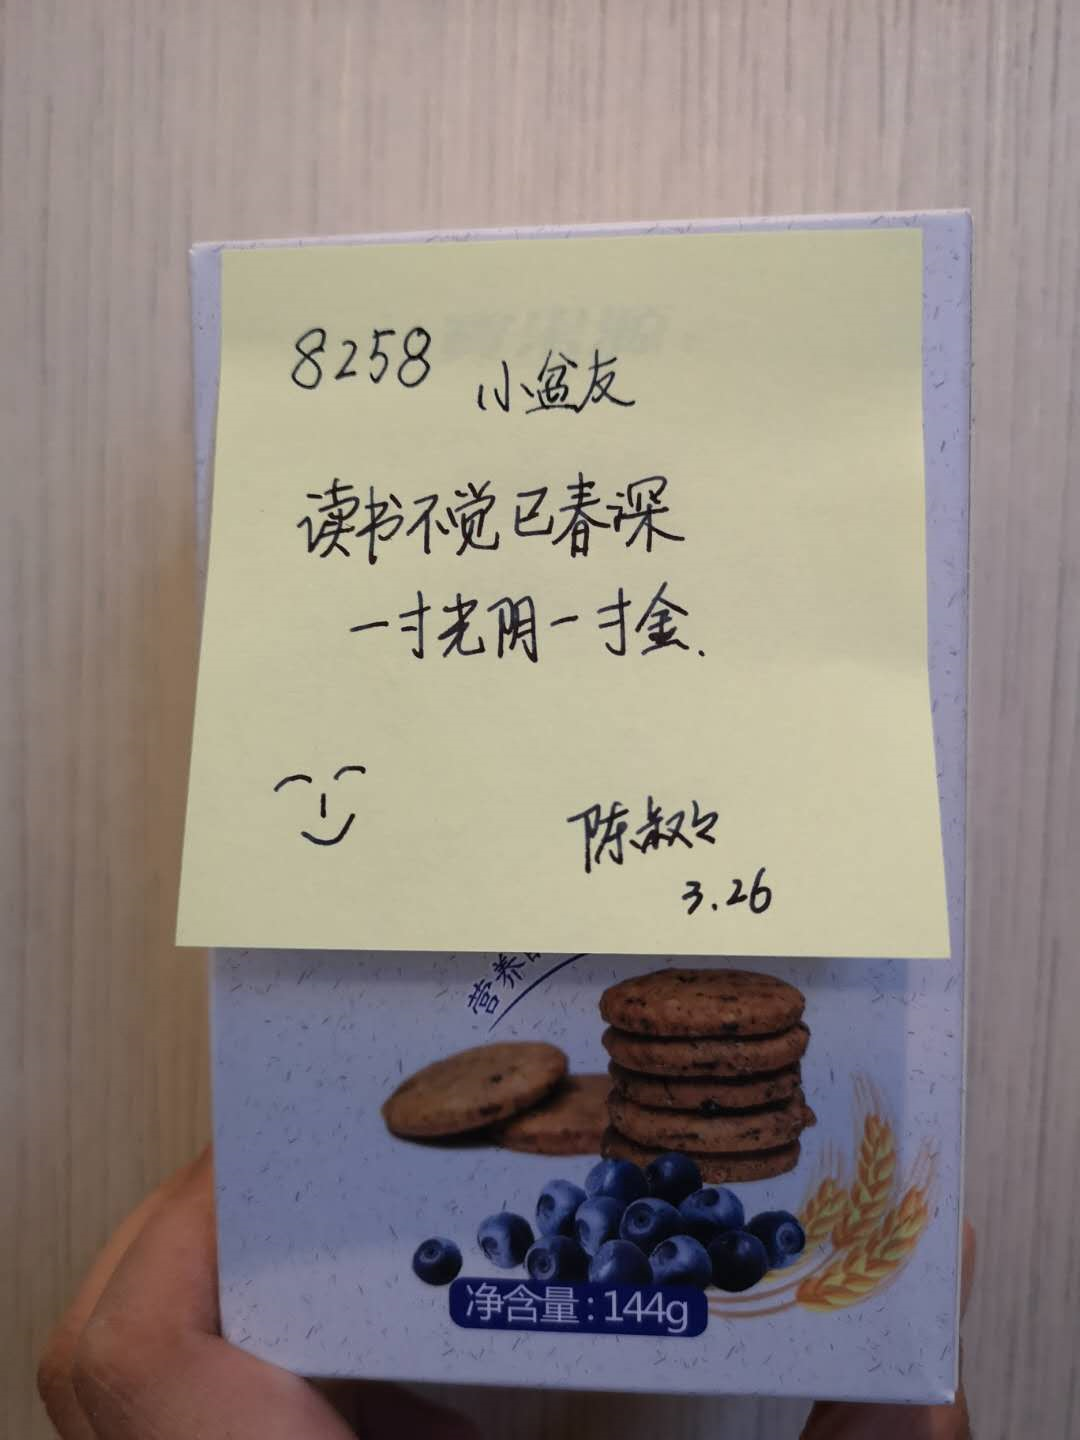 8258 小盆友
读书不觉已春深
一寸光阴一寸金.
陈叔叔
3.26
营养
净含量:144g